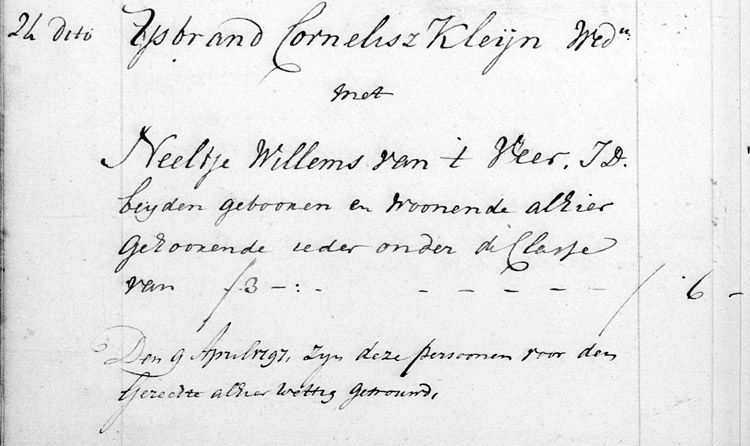 24 dito Ysbrand Cornelisz Kleijn Wedn:
met
Neeltje Willems van 't Veer, J D.
beyden gebooren en woonende alhier
gehoorende ieder onder de Classe
van f 3 - : - - - - - - / 6 -
Den 9 April 1797, zyn deze persoonen voor den
Gerechte alhier wettig getrouwd,